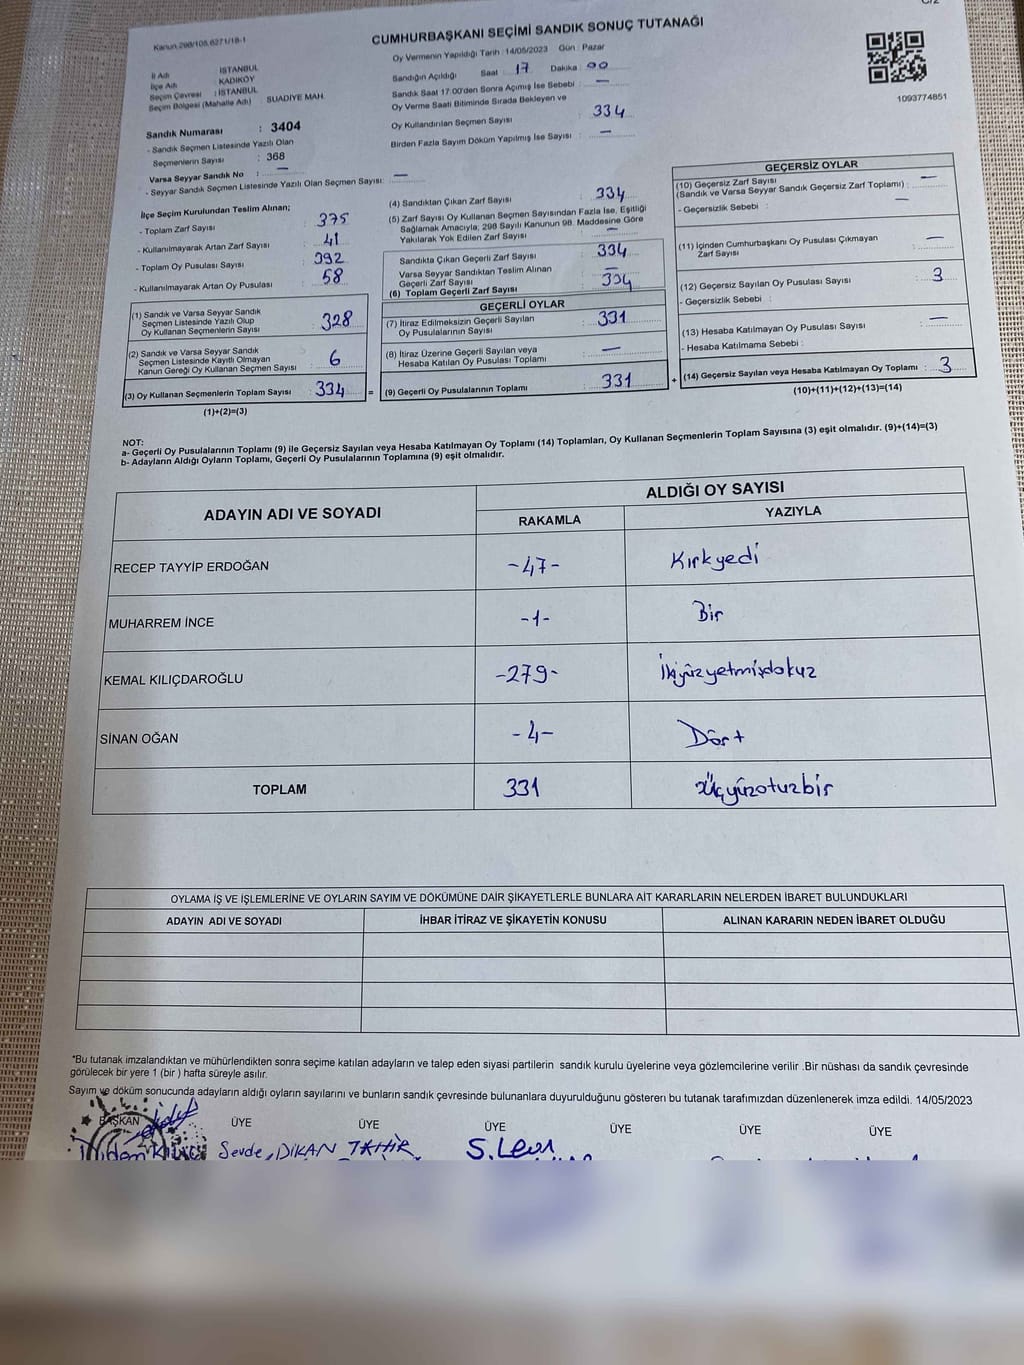 C/2
Kanun 298/105,6271/18-1
CUMHURBAŞKANI SEÇİMİ SANDIK SONUÇ TUTANAĞI
Oy Vermenin Yapıldığı Tarih : 14/05/2023 Gün : Pazar
İl Adı : İSTANBUL
İlçe Adı : KADIKÖY
Seçim Çevresi : İSTANBUL
Seçim Bölgesi (Mahalle Adı) SUADİYE MAH.
Sandığın Açıldığı Saat : 17 Dakika : 00
Sandık Saat 17.00'den Sonra Açımış İse Sebebi : —
Oy Verme Saati Bitiminde Sırada Bekleyen ve
Oy Kullandırılan Seçmen Sayısı : 334
Birden Fazla Sayım Döküm Yapılmış İse Sayısı : —
1093774851
Sandık Numarası : 3404
- Sandık Seçmen Listesinde Yazılı Olan
Seçmenlerin Sayısı : 368
Varsa Seyyar Sandık No : —
- Seyyar Sandık Seçmen Listesinde Yazılı Olan Seçmen Sayısı: —
İlçe Seçim Kurulundan Teslim Alınan;
- Toplam Zarf Sayısı : 375
- Kullanılmayarak Artan Zarf Sayısı : 41
- Toplam Oy Pusulası Sayısı : 392
- Kullanılmayarak Artan Oy Pusulası : 58
(1) Sandık ve Varsa Seyyar Sandık
Seçmen Listesinde Yazılı Olup
Oy Kullanan Seçmenlerin Sayısı : 328
(2) Sandık ve Varsa Seyyar Sandık
Seçmen Listesinde Kayıtlı Olmayan
Kanun Gereği Oy Kullanan Seçmen Sayısı : 6
(3) Oy Kullanan Seçmenlerin Toplam Sayısı : 334 =
(1)+(2)=(3)
(4) Sandıktan Çıkan Zarf Sayısı : 334
(5) Zarf Sayısı Oy Kullanan Seçmen Sayısından Fazla İse, Eşitliği
Sağlamak Amacıyla, 298 Sayılı Kanunun 98. Maddesine Göre
Yakılarak Yok Edilen Zarf Sayısı : —
Sandıkta Çıkan Geçerli Zarf Sayısı : 334
Varsa Seyyar Sandıktan Teslim Alınan
Geçerli Zarf Sayısı : —
(6) Toplam Geçerli Zarf Sayısı : 334
GEÇERLİ OYLAR
(7) İtiraz Edilmeksizin Geçerli Sayılan
Oy Pusulalarının Sayısı : 331
(8) İtiraz Üzerine Geçerli Sayılan veya
Hesaba Katılan Oy Pusulası Toplamı : —
(9) Geçerli Oy Pusulalarının Toplamı : 331 +
GEÇERSİZ OYLAR
(10) Geçersiz Zarf Sayısı
(Sandık ve Varsa Seyyar Sandık Geçersiz Zarf Toplamı) : —
- Geçersizlik Sebebi : —
(11) İçinden Cumhurbaşkanı Oy Pusulası Çıkmayan
Zarf Sayısı : —
(12) Geçersiz Sayılan Oy Pusulası Sayısı : 3
- Geçersizlik Sebebi :
(13) Hesaba Katılmayan Oy Pusulası Sayısı : —
- Hesaba Katılmama Sebebi :
(14) Geçersiz Sayılan veya Hesaba Katılmayan Oy Toplamı : 3
(10)+(11)+(12)+(13)=(14)
NOT:
a- Geçerli Oy Pusulalarının Toplamı (9) ile Geçersiz Sayılan veya Hesaba Katılmayan Oy Toplamı (14) Toplamları, Oy Kullanan Seçmenlerin Toplam Sayısına (3) eşit olmalıdır. (9)+(14)=(3)
b- Adayların Aldığı Oyların Toplamı, Geçerli Oy Pusulalarının Toplamına (9) eşit olmalıdır.
ADAYIN ADI VE SOYADI
ALDIĞI OY SAYISI
RAKAMLA YAZIYLA
RECEP TAYYİP ERDOĞAN -47- Kırkyedi
MUHARREM İNCE -1- Bir
KEMAL KILIÇDAROĞLU -279- İkiyüzyetmişdokuz
SİNAN OĞAN -4- Dört
TOPLAM 331 Üçyüzotuzbir
OYLAMA İŞ VE İŞLEMLERİNE VE OYLARIN SAYIM VE DÖKÜMÜNE DAİR ŞİKAYETLERLE BUNLARA AİT KARARLARIN NELERDEN İBARET BULUNDUKLARI
ADAYIN ADI VE SOYADI İHBAR İTİRAZ VE ŞİKAYETİN KONUSU ALINAN KARARIN NEDEN İBARET OLDUĞU
"Bu tutanak imzalandıktan ve mühürlendikten sonra seçime katılan adayların ve talep eden siyasi partilerin sandık kurulu üyelerine veya gözlemcilerine verilir .Bir nüshası da sandık çevresinde
görülecek bir yere 1 (bir ) hafta süreyle asılır.
Sayım ve döküm sonucunda adayların aldığı oyların sayılarını ve bunların sandık çevresinde bulunanlara duyurulduğunu gösteren bu tutanak tarafımızdan düzenlenerek imza edildi. 14/05/2023
BAŞKAN ÜYE ÜYE ÜYE ÜYE ÜYE ÜYE
Sevde DİKAN TAHİR S.Leun